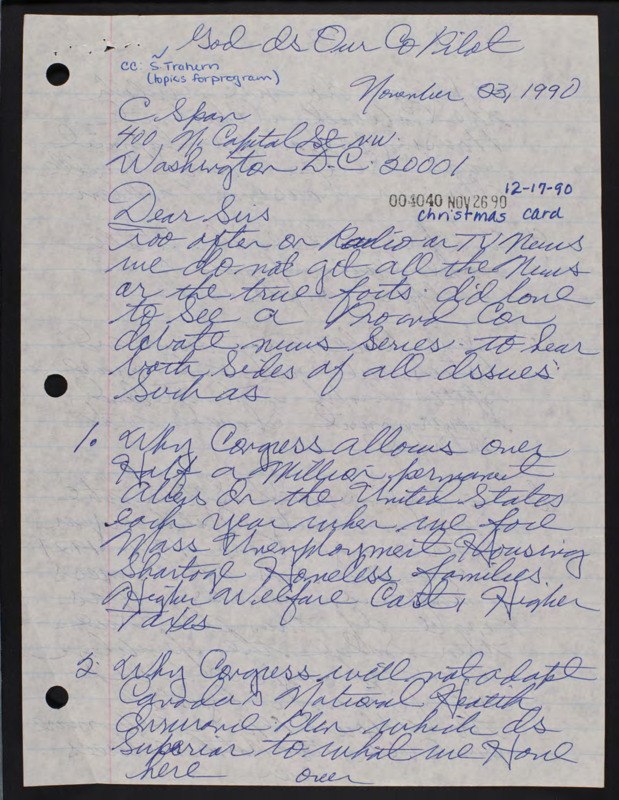 God Is Our Co Pilot
cc: S. Trahern
(topics for program)
November 23, 1990
C Span
400 N. Capital St NW.
Washington D.C. 20001
12-17-90
004040 NOV 26 90
christmas card
Dear Sirs
Too often on Radio or TV News
we do not get all the News
or the true facts. I'd love
to see a Pro and Con
debate news Series. to hear
both Sides of all issues
Such as
1. Why Congress allows over
Half a Million permanent
Aliens In the United States
each year when we face
Mass Unemployment, Housing
Shortage Homeless families
Higher Welfare Cost, Higher
Taxes
2. Why Congress will not adopt
Canada's National Health
Insurance Plan which Is
Superior to what we Have
here
over